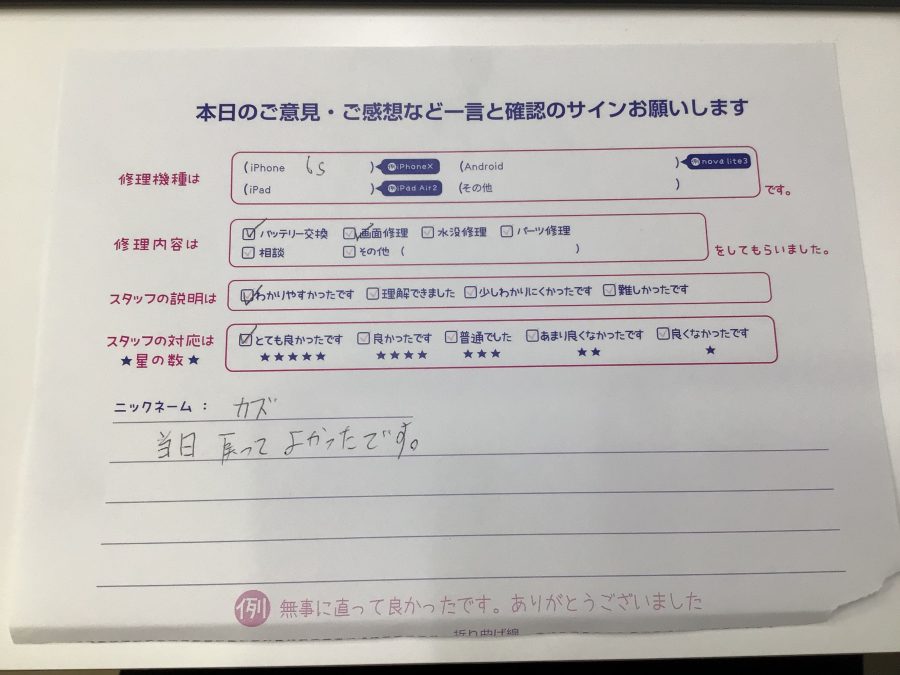 本日のご意見・ご感想など一言と確認のサインお願いします
修理機種は
(iPhone 6s ) iPhoneX (Android ) nova lite3
(iPad ) iPad Air2 (その他 ) です。
修理内容は
バッテリー交換 画面修理 水没修理 パーツ修理
相談 その他 ( ) をしてもらいました。
スタッフの説明は わかりやすかったです 理解できました 少しわかりにくかったです 難しかったです
スタッフの対応は とても良かったです 良かったです 普通でした あまり良くなかったです 良くなかったです
★星の数★ ★★★★★ ★★★★ ★★★ ★★ ★
ニックネーム： カズ
当日 戻って よかったです。
例 無事に直って良かったです。ありがとうございました
折り曲げ線